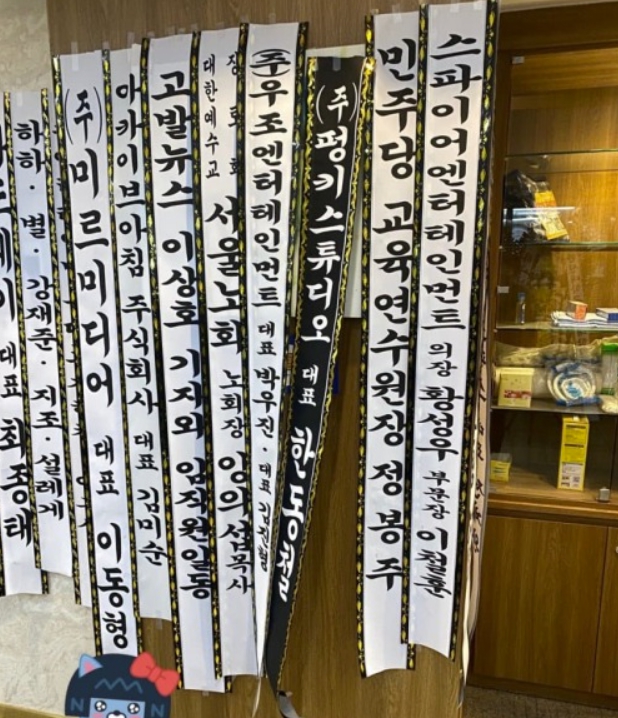 대표 최종태
하하 · 별 · 강재준 · 지조 · 설레게
(주)미르미디어 대표 이동형
아카이브아침 주식회사 대표 김미순
고발뉴스 이상호 기자와 임직원일동
대한예수교
장로회
서울노회 노회장 양의섭목사
(주)우조엔터테인먼트 대표 박우진 · 대표
(주)펑키스튜디오 대표
민주당 교육연수원장 정봉주
스파이어엔터테인먼트 의장 황성우 부문장 이철훈
N
N